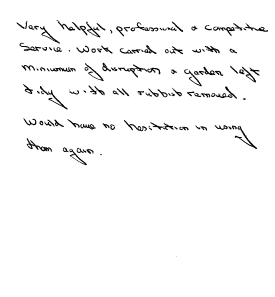 Very helpful, professional & competitive
Service. Work carried out with a
minimum of disruption & garden left
tidy with all rubbish removed.
Would have no hesitation in using
them again.